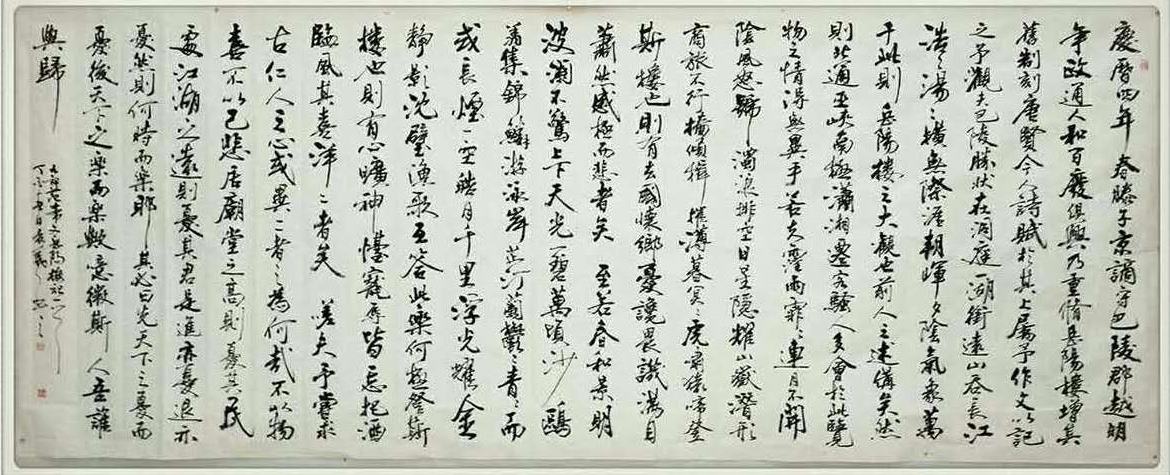 慶曆四年春滕子京謫守巴陵郡越明
年政通人和百廢俱興乃重脩岳陽樓增其
舊制刻唐賢今人詩賦於其上屬予作文以記
之予觀夫巴陵勝狀在洞庭一湖銜遠山吞長江
浩々湯々橫無際涯朝暉夕陰氣象萬
千此則岳陽樓之大觀也前人之述備矣然
則北通巫峽南極瀟湘遷客騷人多會於此覽
物之情得無異乎若夫霪雨霏々連月不開
陰風怒號濁浪排空日星隱耀山嶽潛形
商旅不行檣傾楫摧薄暮冥々虎嘯猿啼登
斯樓也則有去國懷鄉憂讒畏譏滿目
蕭然感極而悲者矣至若春和景明
波瀾不驚上下天光一碧萬頃沙鷗
翔集錦鱗游泳岸芷汀蘭鬱々青々而
或長煙一空皓月千里浮光耀金
靜影沈璧漁歌互答此樂何極登斯
樓也則有心曠神怡寵辱皆忘把酒
臨風其喜洋々者矣嗟夫予嘗求
古仁人之心或異二者之為何哉不以物
喜不以己悲居廟堂之高則憂其民
處江湖之遠則憂其君是進亦憂退亦
憂然則何時而樂耶其必曰先天下之憂而
憂後天下之樂而樂歟噫微斯人吾誰
與歸